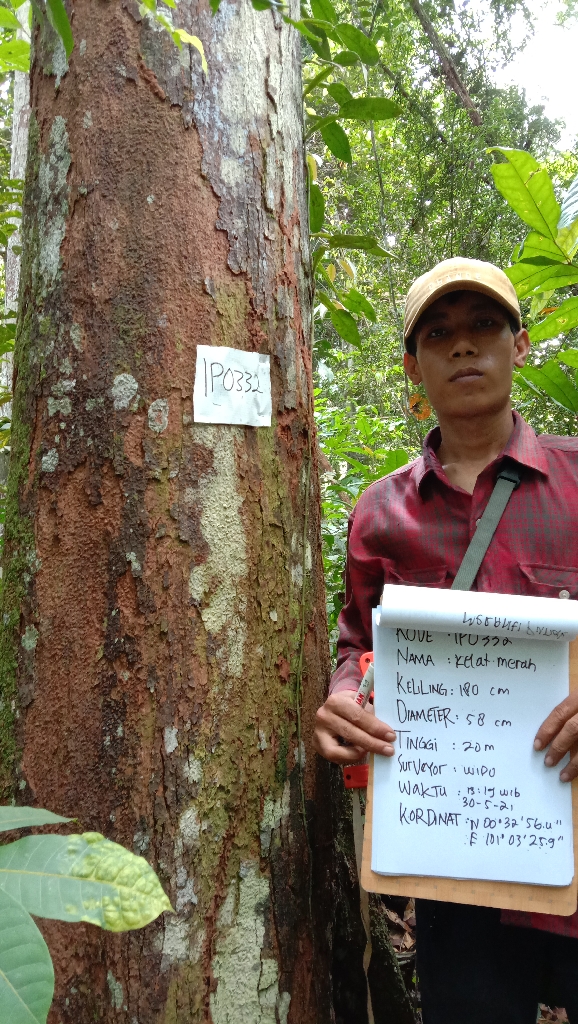 1P0332
KODE : 1P0332
NAMA : Kelat merah
KELILING : 180 cm
DIAMETER : 58 cm
TINGGI : 20 m
SURVEYOR : WIDO
WAKTU : 13:19 WIB
30-5-21
KORDINAT : N 00° 32' 56.4"
: E 101° 03' 25.9"